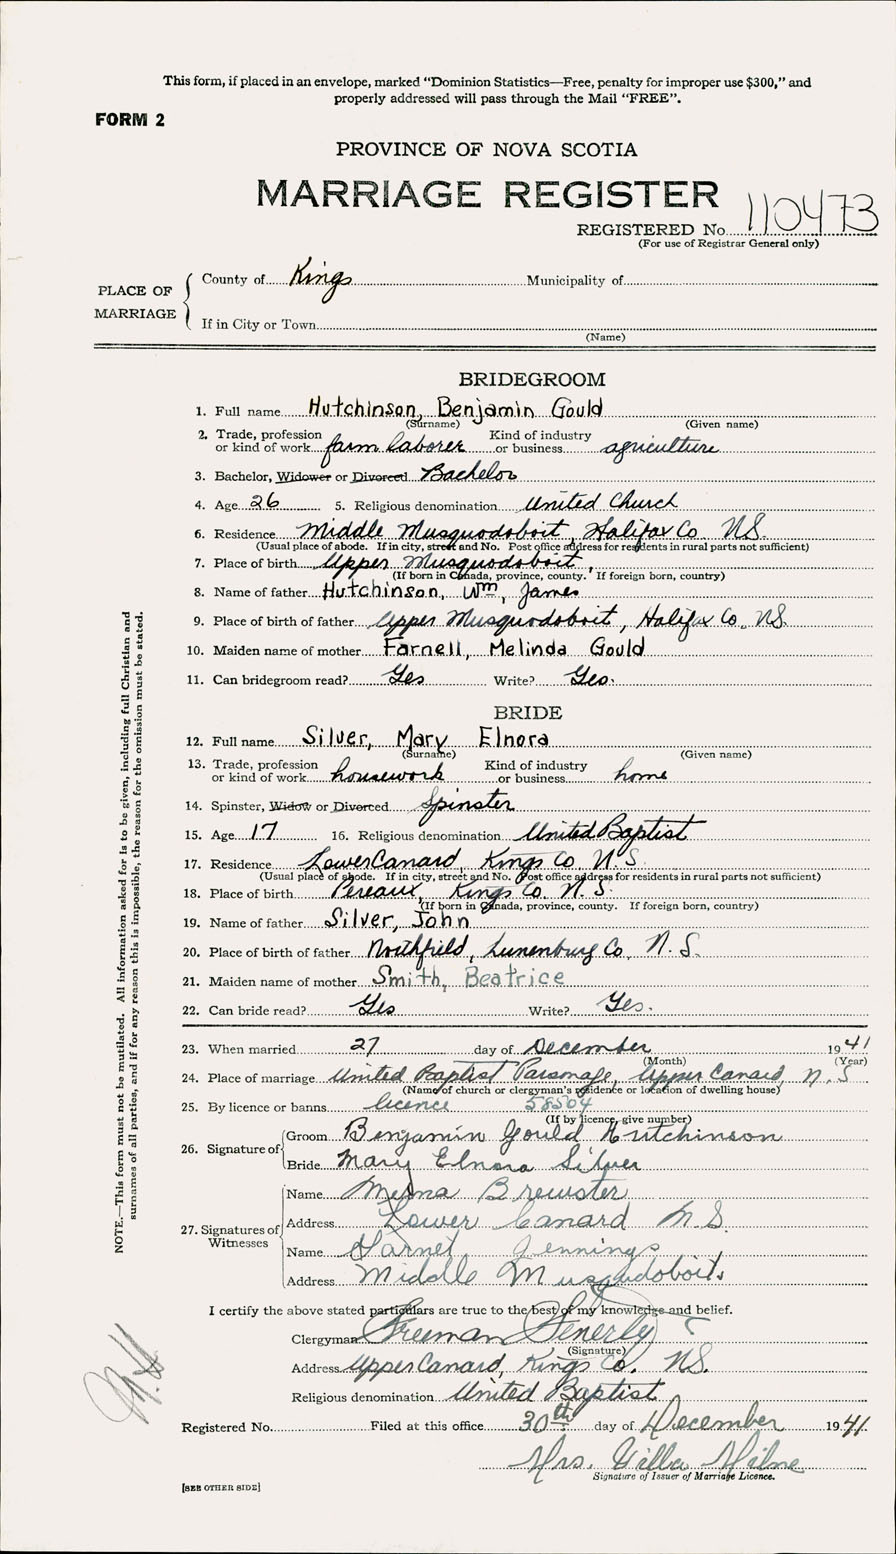 This form, if placed in an envelope, marked “Dominion Statistics—Free, penalty for improper use $300,” and
properly addressed will pass through the Mail “FREE”.
FORM 2
PROVINCE OF NOVA SCOTIA
MARRIAGE REGISTER
REGISTERED No. 110473
(For use of Registrar General only)
PLACE OF MARRIAGE
County of Kings Municipality of
If in City or Town
(Name)
BRIDEGROOM
1. Full name Hutchinson, Benjamin Gould
(Surname) (Given name)
2. Trade, profession or kind of work farm laborer Kind of industry or business agriculture
3. Bachelor, Widower or Divorced Bachelor
4. Age 26 5. Religious denomination United Church
6. Residence Middle Musquodoboit, Halifax Co. N.S.
(Usual place of abode. If in city, street and No. Post office address for residents in rural parts not sufficient)
7. Place of birth Upper Musquodoboit,
(If born in Canada, province, county. If foreign born, country)
8. Name of father Hutchinson, Wm, James
9. Place of birth of father Upper Musquodoboit, Halifax Co. N.S.
10. Maiden name of mother Farnell, Melinda Gould
11. Can bridegroom read? Yes Write? Yes.
BRIDE
12. Full name Silver, Mary Elnora
(Surname) (Given name)
13. Trade, profession or kind of work housework Kind of industry or business home
14. Spinster, Widow or Divorced Spinster
15. Age 17 16. Religious denomination United Baptist
17. Residence Lower Canard, Kings Co, N.S.
(Usual place of abode. If in city, street and No. Post office address for residents in rural parts not sufficient)
18. Place of birth Pereaux, Kings Co. N.S.
(If born in Canada, province, county. If foreign born, country)
19. Name of father Silver, John
20. Place of birth of father Northfield, Lunenburg Co, N.S.
21. Maiden name of mother Smith, Beatrice
22. Can bride read? Yes Write? Yes.
23. When married 27 day of December 1941
(Month) (Year)
24. Place of marriage United Baptist Parsonage, Upper Canard, N.S
(Name of church or clergyman's residence or location of dwelling house)
25. By licence or banns licence 58504
(If by licence, give number)
26. Signature of
Groom Benjamin Gould Hutchinson
Bride Mary Elnora Silver
27. Signatures of Witnesses
Name Merna Brewster
Address Lower Canard N.S.
Name Garnet Jennings
Address Middle Musquodoboit
I certify the above stated particulars are true to the best of my knowledge and belief.
Clergyman Freeman Fenerty
(Signature)
Address Upper Canard, Kings Co. N.S.
Religious denomination United Baptist
Registered No. Filed at this office 30th day of December 1941
Mrs. Willa Milne
Signature of Issuer of Marriage Licence.
[SEE OTHER SIDE]
NOTE.—This form must not be mutilated. All information asked for is to be given, including full Christian and
surnames of all parties, and if for any reason this is impossible, the reason for the omission must be stated.